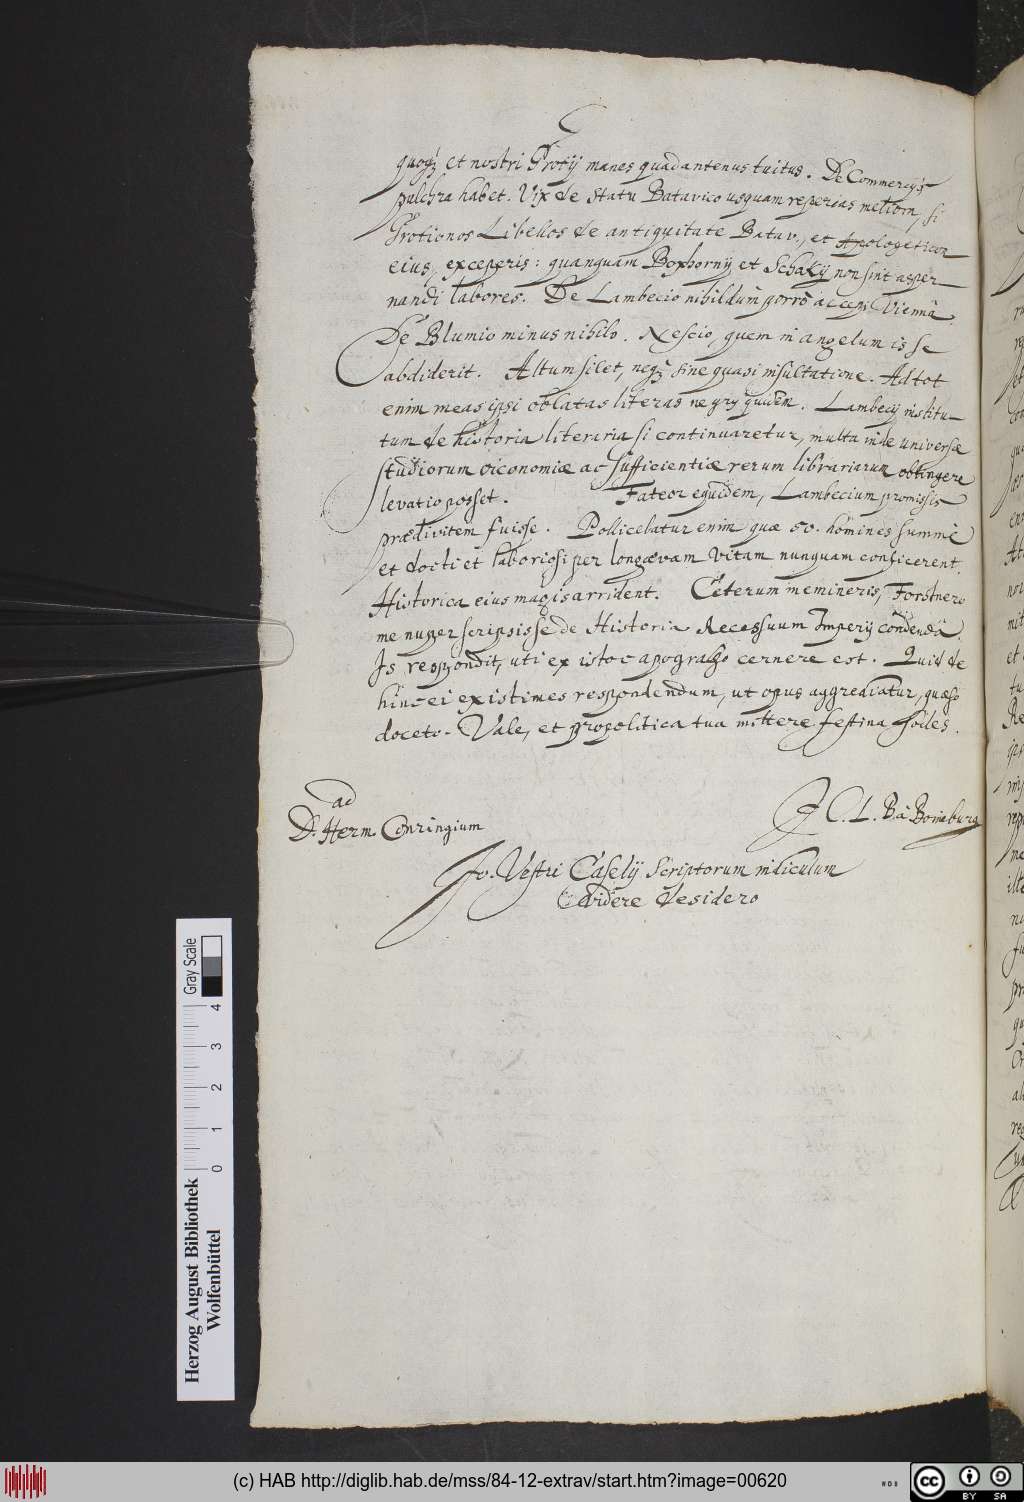 quoq₃ et nostri Grotij manes quadantenus tuitus. De Commercijs
pulchra habet. Vix de statu Batavico usquam reperias meliora, si
Grotianos Libellos de antiquitate Batav., et Apologeticon
eius, exceperis: quanquam Boxhornij et Schakij non sint asper-
nandi labores. De Lambecio nihildum porrò accepi Viennâ.
De Blumio minus nihilo. Nescio, quem in angelum is se
abdiderit. Altum silet, neq₃ sine quasi insultatione. Ad tot
enim meas ipsi oblatas literas ne gry quidem. Lambecij institu-
tum de historia literaria si continuaretur, multa inde universæ
studiorum oiconomiæ ac sufficientiæ rerum librariarum obtingere
levatio posset. Fateor equidem, Lambecium promissis
prædivitem fuisse. Pollicebatur enim quæ 50. homines summè
et docti et laboriosi per longævam vitam nunquam conficerent.
Historica eius magis arrident. Ceterum memineris, Forstnero
me nuper scripsisse de Historia Recessuum Imperij condendâ.
Is respondit, uti ex istoc apographo cernere est. Quid de
hinc ei existimes respondendum, ut opus aggrediatur, quæso
doceto. Vale, et propolitica tua mittere festina sodes.
ad
D. Herm. Conringium
J. C. L. B. à Boineburg
Jo. Vestri Caselij Scriptorum indiculum
videre desidero
Herzog August Bibliothek
Wolfenbüttel
0 1 2 3 4
Gray Scale
(c) HAB http://diglib.hab.de/mss/84-12-extrav/start.htm?image=00620
cc BY SA